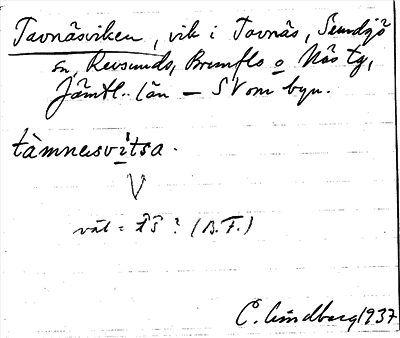 Tavnäsviken, vik i Tavnäs, Sundsjö
sn, Revsunds, Brunflo o Näs tg,
Jämtl. län – SV om byn.
tàmnəsvi̇tsa.
V
vät = t̂s ? (B.F.)
C. Lindberg 1937